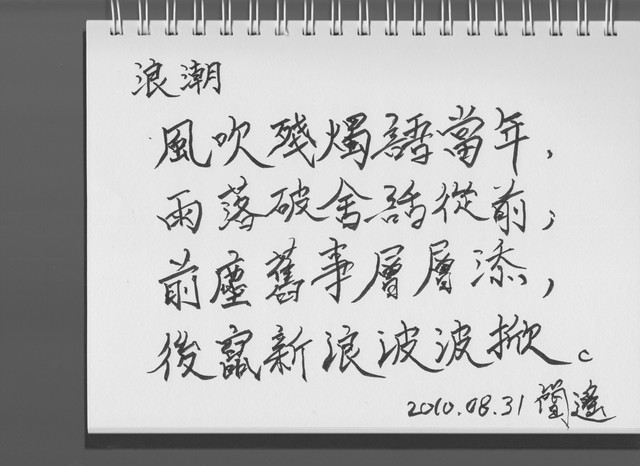 浪潮
風吹殘燭語當年，
雨落破舍話從前；
前塵舊事層層添，
後竄新浪波波掀。
2010.08.31 簡遙